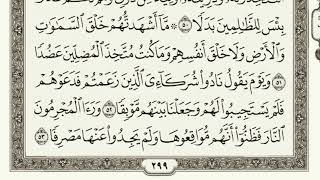 بِئْسَ لِلظَّٰلِمِينَ بَدَلًا ٥٠ مَّآ أَشْهَدتُّهُمْ خَلْقَ ٱلسَّمَٰوَٰتِ
وَٱلْأَرْضِ وَلَا خَلْقَ أَنفُسِهِمْ وَمَا كُنتُ مُتَّخِذَ ٱلْمُضِلِّينَ عَضُدًا
٥١ وَيَوْمَ يَقُولُ نَادُوا۟ شُرَكَآءِىَ ٱلَّذِينَ زَعَمْتُمْ فَدَعَوْهُمْ
فَلَمْ يَسْتَجِيبُوا۟ لَهُمْ وَجَعَلْنَا بَيْنَهُم مَّوْبِقًا ٥٢ وَرَءَا ٱلْمُجْرِمُونَ
ٱلنَّارَ فَظَنُّوٓا۟ أَنَّهُم مُّوَاقِعُوهَا وَلَمْ يَجِدُوا۟ عَنْهَا مَصْرِفًا ٥٣
٢٩٩